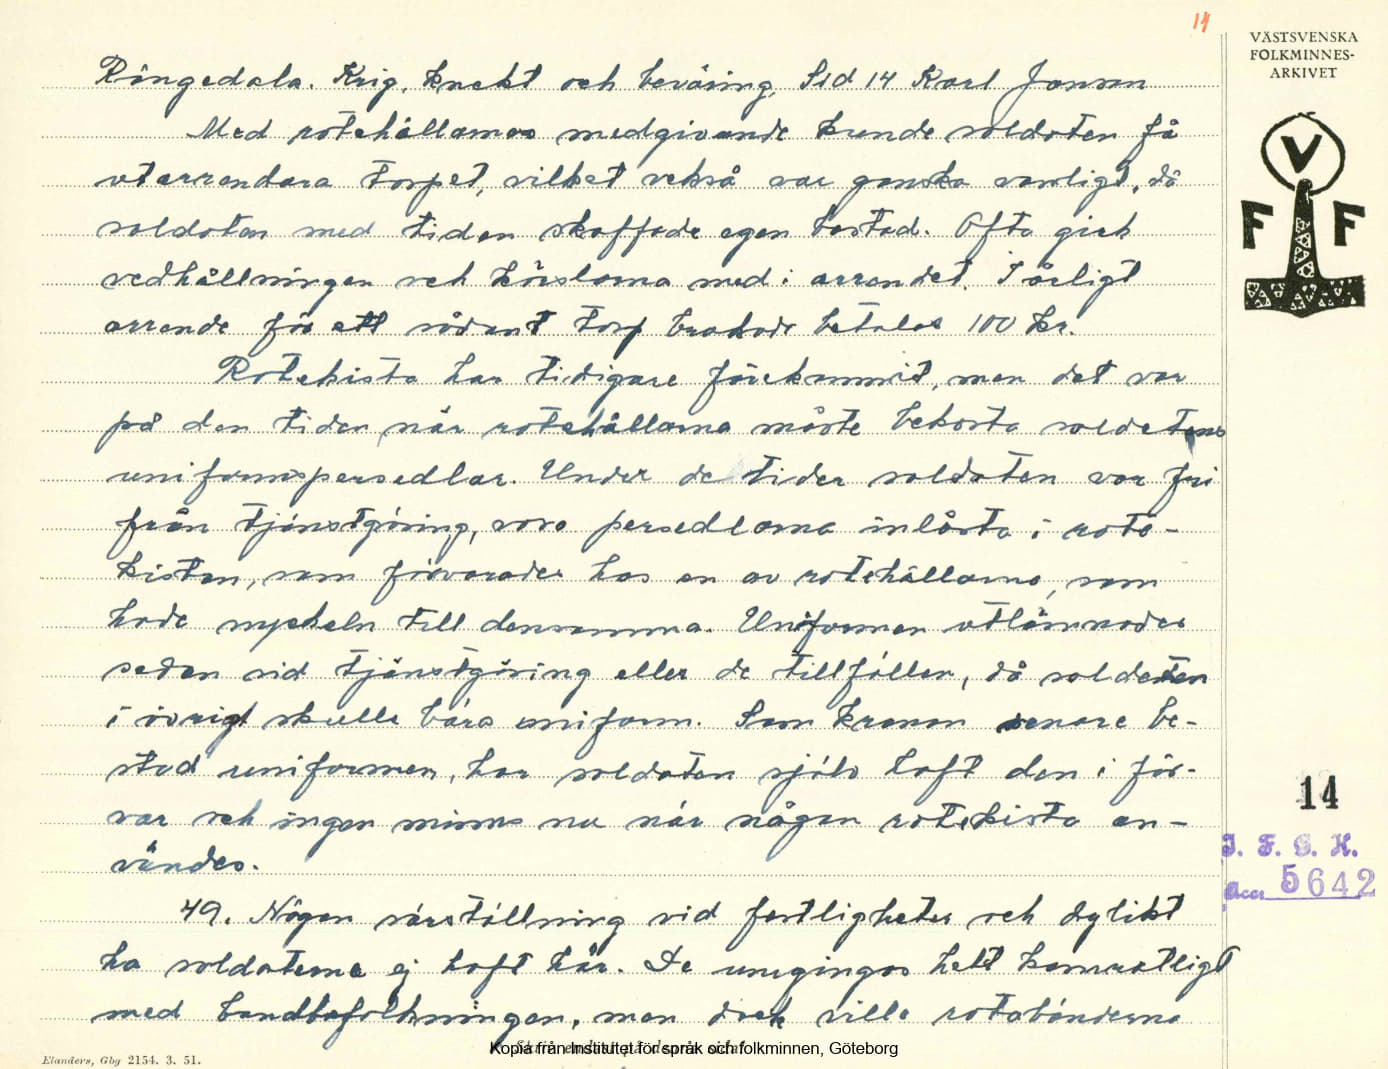 14
VÄSTSVENSKA
FOLKMINNES-
ARKIVET
V
F F
Rångedala. Krig, knekt och beväring, Sid 14 Karl Jonson
Med rotehållarnas medgivande kunde soldaten få
utarrendera torpet, vilket också var ganska vanligt, då
soldaten med tiden skaffade egen bostad. Ofta gick
vedhållningen och körslorna med i arrendet. I årligt
arrende för ett sådant torp brukade betalas 100 kr.
Rotekista har tidigare förekommit, men det var
på den tiden när rotehållarna måste bekosta soldatens
uniformspersedlar. Under de tider soldaten var fri
från tjänstgöring, voro persedlarna inlåsta i rote-
kistan, som förvarades hos en av rotehållarna, som
hade nyckeln till densamma. Uniformen utlämnades
sedan vid tjänstgöring eller de tillfällen, då soldaten
i övrigt skulle bära uniform. Som kronan senare be-
stod uniformen, har soldaten själv haft den i för-
var och ingen minns nu när någon rotekista an-
vändes.
49. Någon särställning vid festligheter och dylikt
ha soldaterna ej haft här. De umgingos helt kamratligt
med bondbefolkningen, men dock ville rotebönderna
14
I. F. G. H.
Acc. 5642
Elanders, Gbg 2154. 3. 51.
Kopia från Institutet för språk och folkminnen, Göteborg